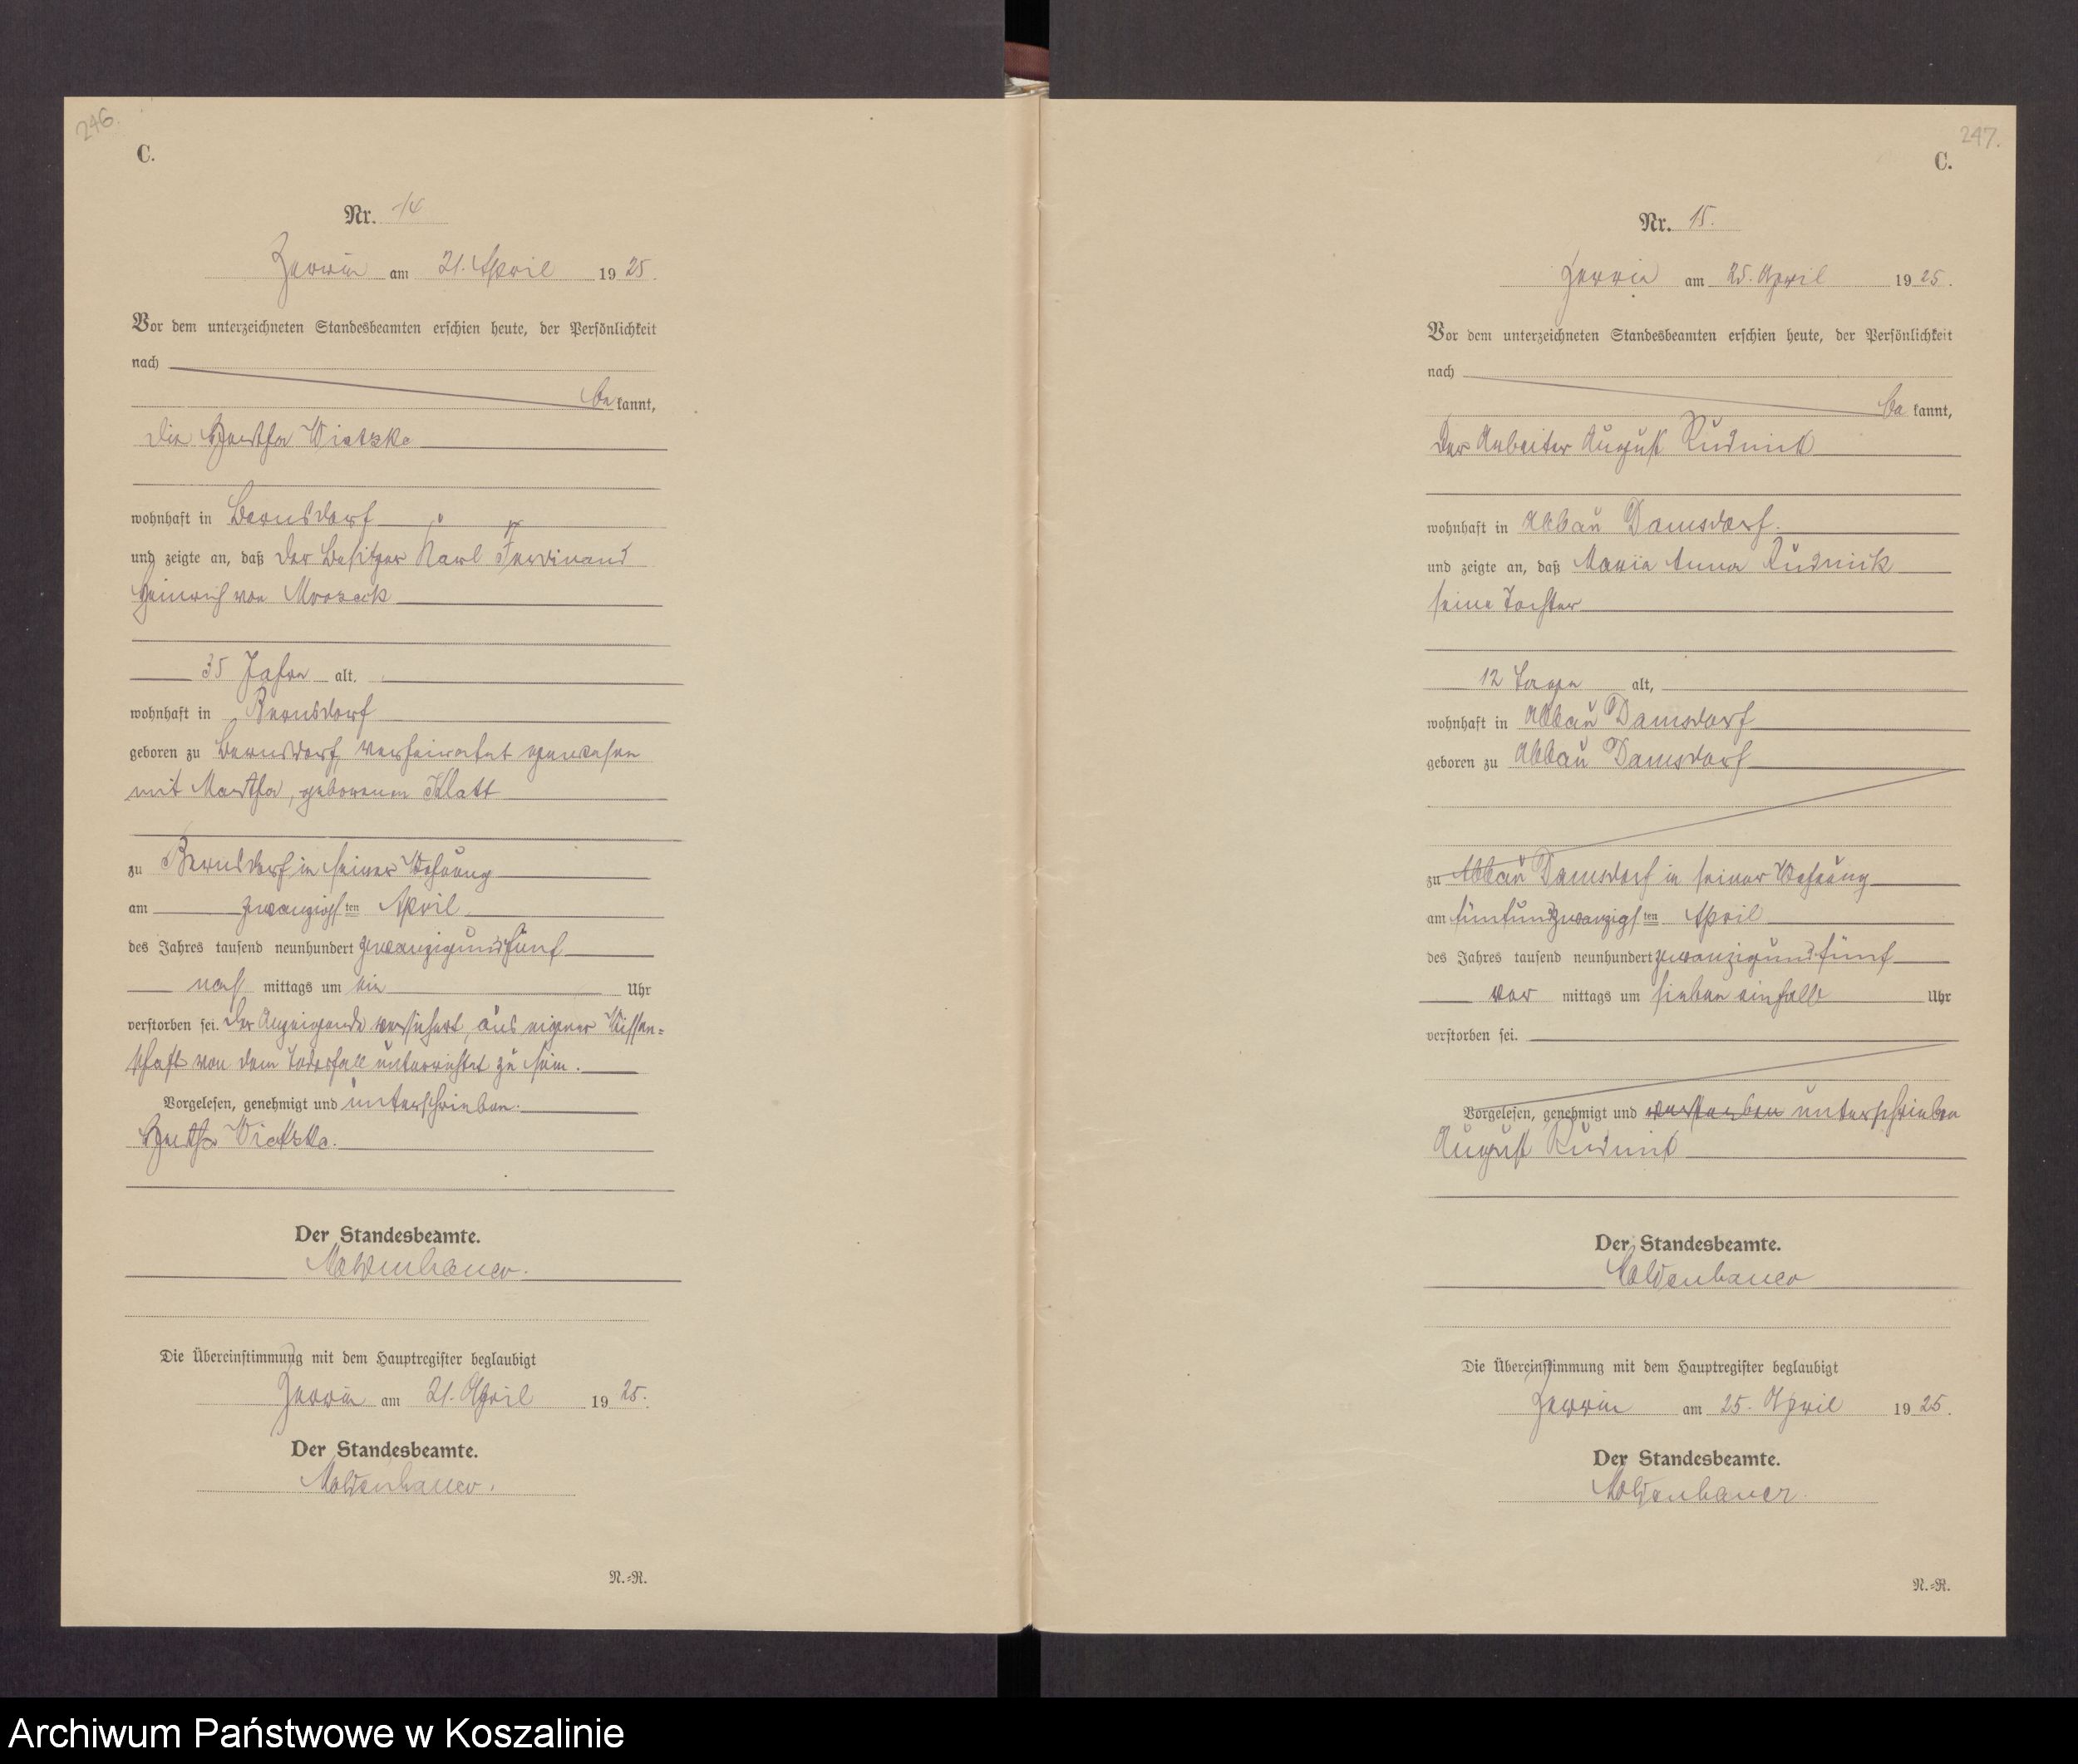 246.
C.
Nr. 14
Zerrin am 21. April 1925.
Vor dem unterzeichneten Standesbeamten erschien heute, der Persönlichkeit
nach
be kannt,
die Hertha Wietzke
wohnhaft in Bernsdorf
und zeigte an, daß der Besitzer Karl Ferdinand
Heinrich von Mroseck
35 Jahre alt,
wohnhaft in Bernsdorf
geboren zu Bernsdorf, verheiratet gewesen
mit Martha, geborenen Klatt
zu Bernsdorf in seiner Wohnung
am zwanzigsten April
des Jahres tausend neunhundert zwanzigundfünf
nach mittags um ein Uhr
verstorben sei. Der Anzeigende versichert, aus eigener Wissen-
schaft von dem Todesfall unterrichtet zu sein.
Vorgelesen, genehmigt und unterschrieben.
Hertha Wietzke.
Der Standesbeamte.
Moldenhauer.
Die Übereinstimmung mit dem Hauptregister beglaubigt
Zerrin am 21. April 1925.
Der Standesbeamte.
Moldenhauer.
N.-R.
247.
C.
Nr. 15.
Zerrin am 25. April 1925.
Vor dem unterzeichneten Standesbeamten erschien heute, der Persönlichkeit
nach
be kannt,
Der Arbeiter August Rudnick
wohnhaft in Abbau Damsdorf.
und zeigte an, daß Maria Anna Rudnick
seine Tochter
12 Tage alt,
wohnhaft in Abbau Damsdorf
geboren zu Abbau Damsdorf
zu Abbau Damsdorf in seiner Wohnung
am fünfundzwanzigsten April
des Jahres tausend neunhundert zwanzigundfünf
vor mittags um sieben einhalb Uhr
verstorben sei.
Vorgelesen, genehmigt und verstorben unterschrieben
August Rudnick
Der Standesbeamte.
Moldenhauer
Die Übereinstimmung mit dem Hauptregister beglaubigt
Zerrin am 25. April 1925.
Der Standesbeamte.
Moldenhauer.
N.-R.
Archiwum Państwowe w Koszalinie